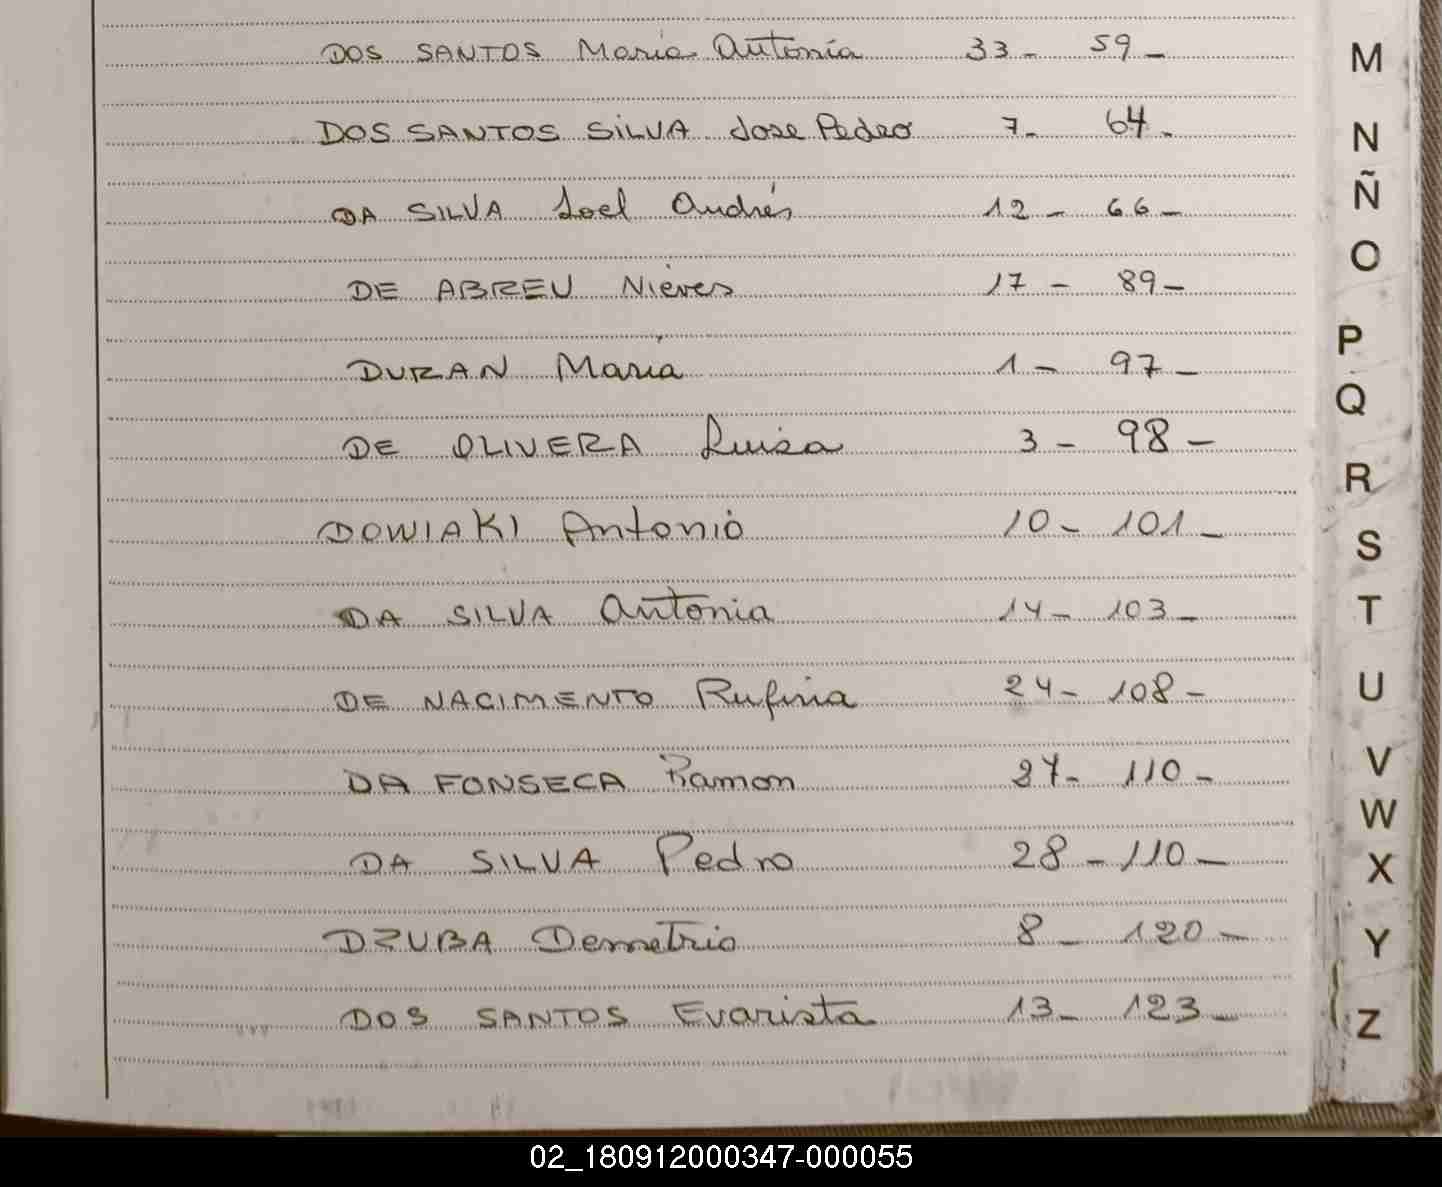 DOS SANTOS Maria Antonia 33- 59-
DOS SANTOS SILVA Jose Pedro 7- 64-
DA SILVA Joel Andrés 12- 66-
DE ABREU Nieves 17- 89-
DURAN María 1- 97-
DE OLIVERA Luisa 3- 98-
DOWIAKI Antonio 10- 101-
DA SILVA Antonia 14- 103-
DE NACIMENTO Rufina 24- 108-
DA FONSECA Ramon 27- 110-
DA SILVA Pedro 28- 110-
DZUBA Demetrio 8- 120-
DOS SANTOS Evarista 13- 123-
M
N
Ñ
O
P
Q
R
S
T
U
V
W
X
Y
Z
02_180912000347-000055